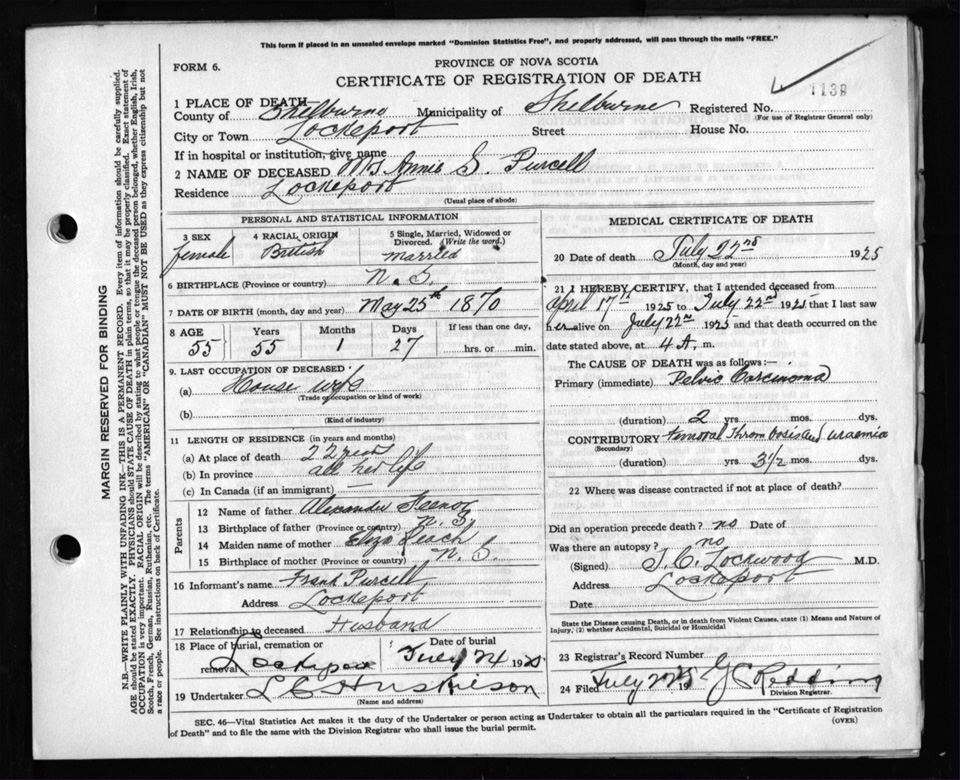 This form if placed in an unsealed envelope marked "Dominion Statistics Free", and properly addressed, will pass through the mails "FREE."
FORM 6.
PROVINCE OF NOVA SCOTIA
CERTIFICATE OF REGISTRATION OF DEATH
1139
1 PLACE OF DEATH
County of Shelburne Municipality of Shelburne Registered No.
(For use of Registrar General only)
City or Town Lockeport Street House No.
If in hospital or institution, give name
2 NAME OF DECEASED Mrs Annie S. Purcell
Residence Lockeport
(Usual place of abode)
PERSONAL AND STATISTICAL INFORMATION
3 SEX female
4 RACIAL ORIGIN British
5 Single, Married, Widowed or Divorced. (Write the word.) married
6 BIRTHPLACE (Province or country) N. S.
7 DATE OF BIRTH (month, day and year) May 25th 1870
8 AGE Years Months Days If less than one day,
55 55 1 27 hrs. or min.
9. LAST OCCUPATION OF DECEASED
(a) House wife
(Trade or occupation or kind of work)
(b)
(Kind of industry)
11 LENGTH OF RESIDENCE (in years and months)
(a) At place of death 22 years
(b) In province all her life
(c) In Canada (if an immigrant)
Parents
12 Name of father Alexander
13 Birthplace of father (Province or country) N. S.
14 Maiden name of mother Eliza Leach
15 Birthplace of mother (Province or country) N. S.
16 Informant's name Frank Purcell
Address Lockeport
17 Relationship to deceased Husband
18 Place of burial, cremation or removal Lockeport Date of burial July 24 1925
19 Undertaker L C Huskilson
(Name and address)
MEDICAL CERTIFICATE OF DEATH
20 Date of death July 22nd 1925
(Month, day and year)
21 I HEREBY CERTIFY, that I attended deceased from
April 17th 1925 to July 22nd 1925 that I last saw
her alive on July 22nd 1925 and that death occurred on the
date stated above, at 4 A. m.
The CAUSE OF DEATH was as follows:—
Primary (immediate) Pelvic Carcinoma
(duration) 2 yrs mos. dys.
CONTRIBUTORY Femoral Thrombosis and uraemia
(Secondary)
(duration) yrs 3½ mos. dys.
22 Where was disease contracted if not at place of death?
Did an operation precede death? no Date of
Was there an autopsy? no
(Signed) J. C. Lockwood M.D.
Address Lockeport
Date
State the Disease causing Death, or in death from Violent Causes, state (1) Means and Nature of Injury, (2) whether Accidental, Suicidal or Homicidal
23 Registrar's Record Number
24 Filed July 19 Redding
Division Registrar.
SEC. 46—Vital Statistics Act makes it the duty of the Undertaker or person acting as Undertaker to obtain all the particulars required in the "Certificate of Registration
of Death" and to file the same with the Division Registrar who shall issue the burial permit.
(OVER)
MARGIN RESERVED FOR BINDING
N.B.—WRITE PLAINLY WITH UNFADING INK—THIS IS A PERMANENT RECORD. Every item of information should be carefully supplied.
AGE should be stated EXACTLY. PHYSICIANS should STATE CAUSE OF DEATH in plain terms, so that it may be properly classified. Exact statement of
OCCUPATION is very important. RACIAL ORIGIN will be described by stating to what people or tongue the deceased person belonged, whether English, Irish,
Scotch, French, German, Russian, Ruthenian, etc. The terms "AMERICAN" or "CANADIAN" MUST NOT BE USED as they express citizenship but not
a race or people. See instructions on back of Certificate.